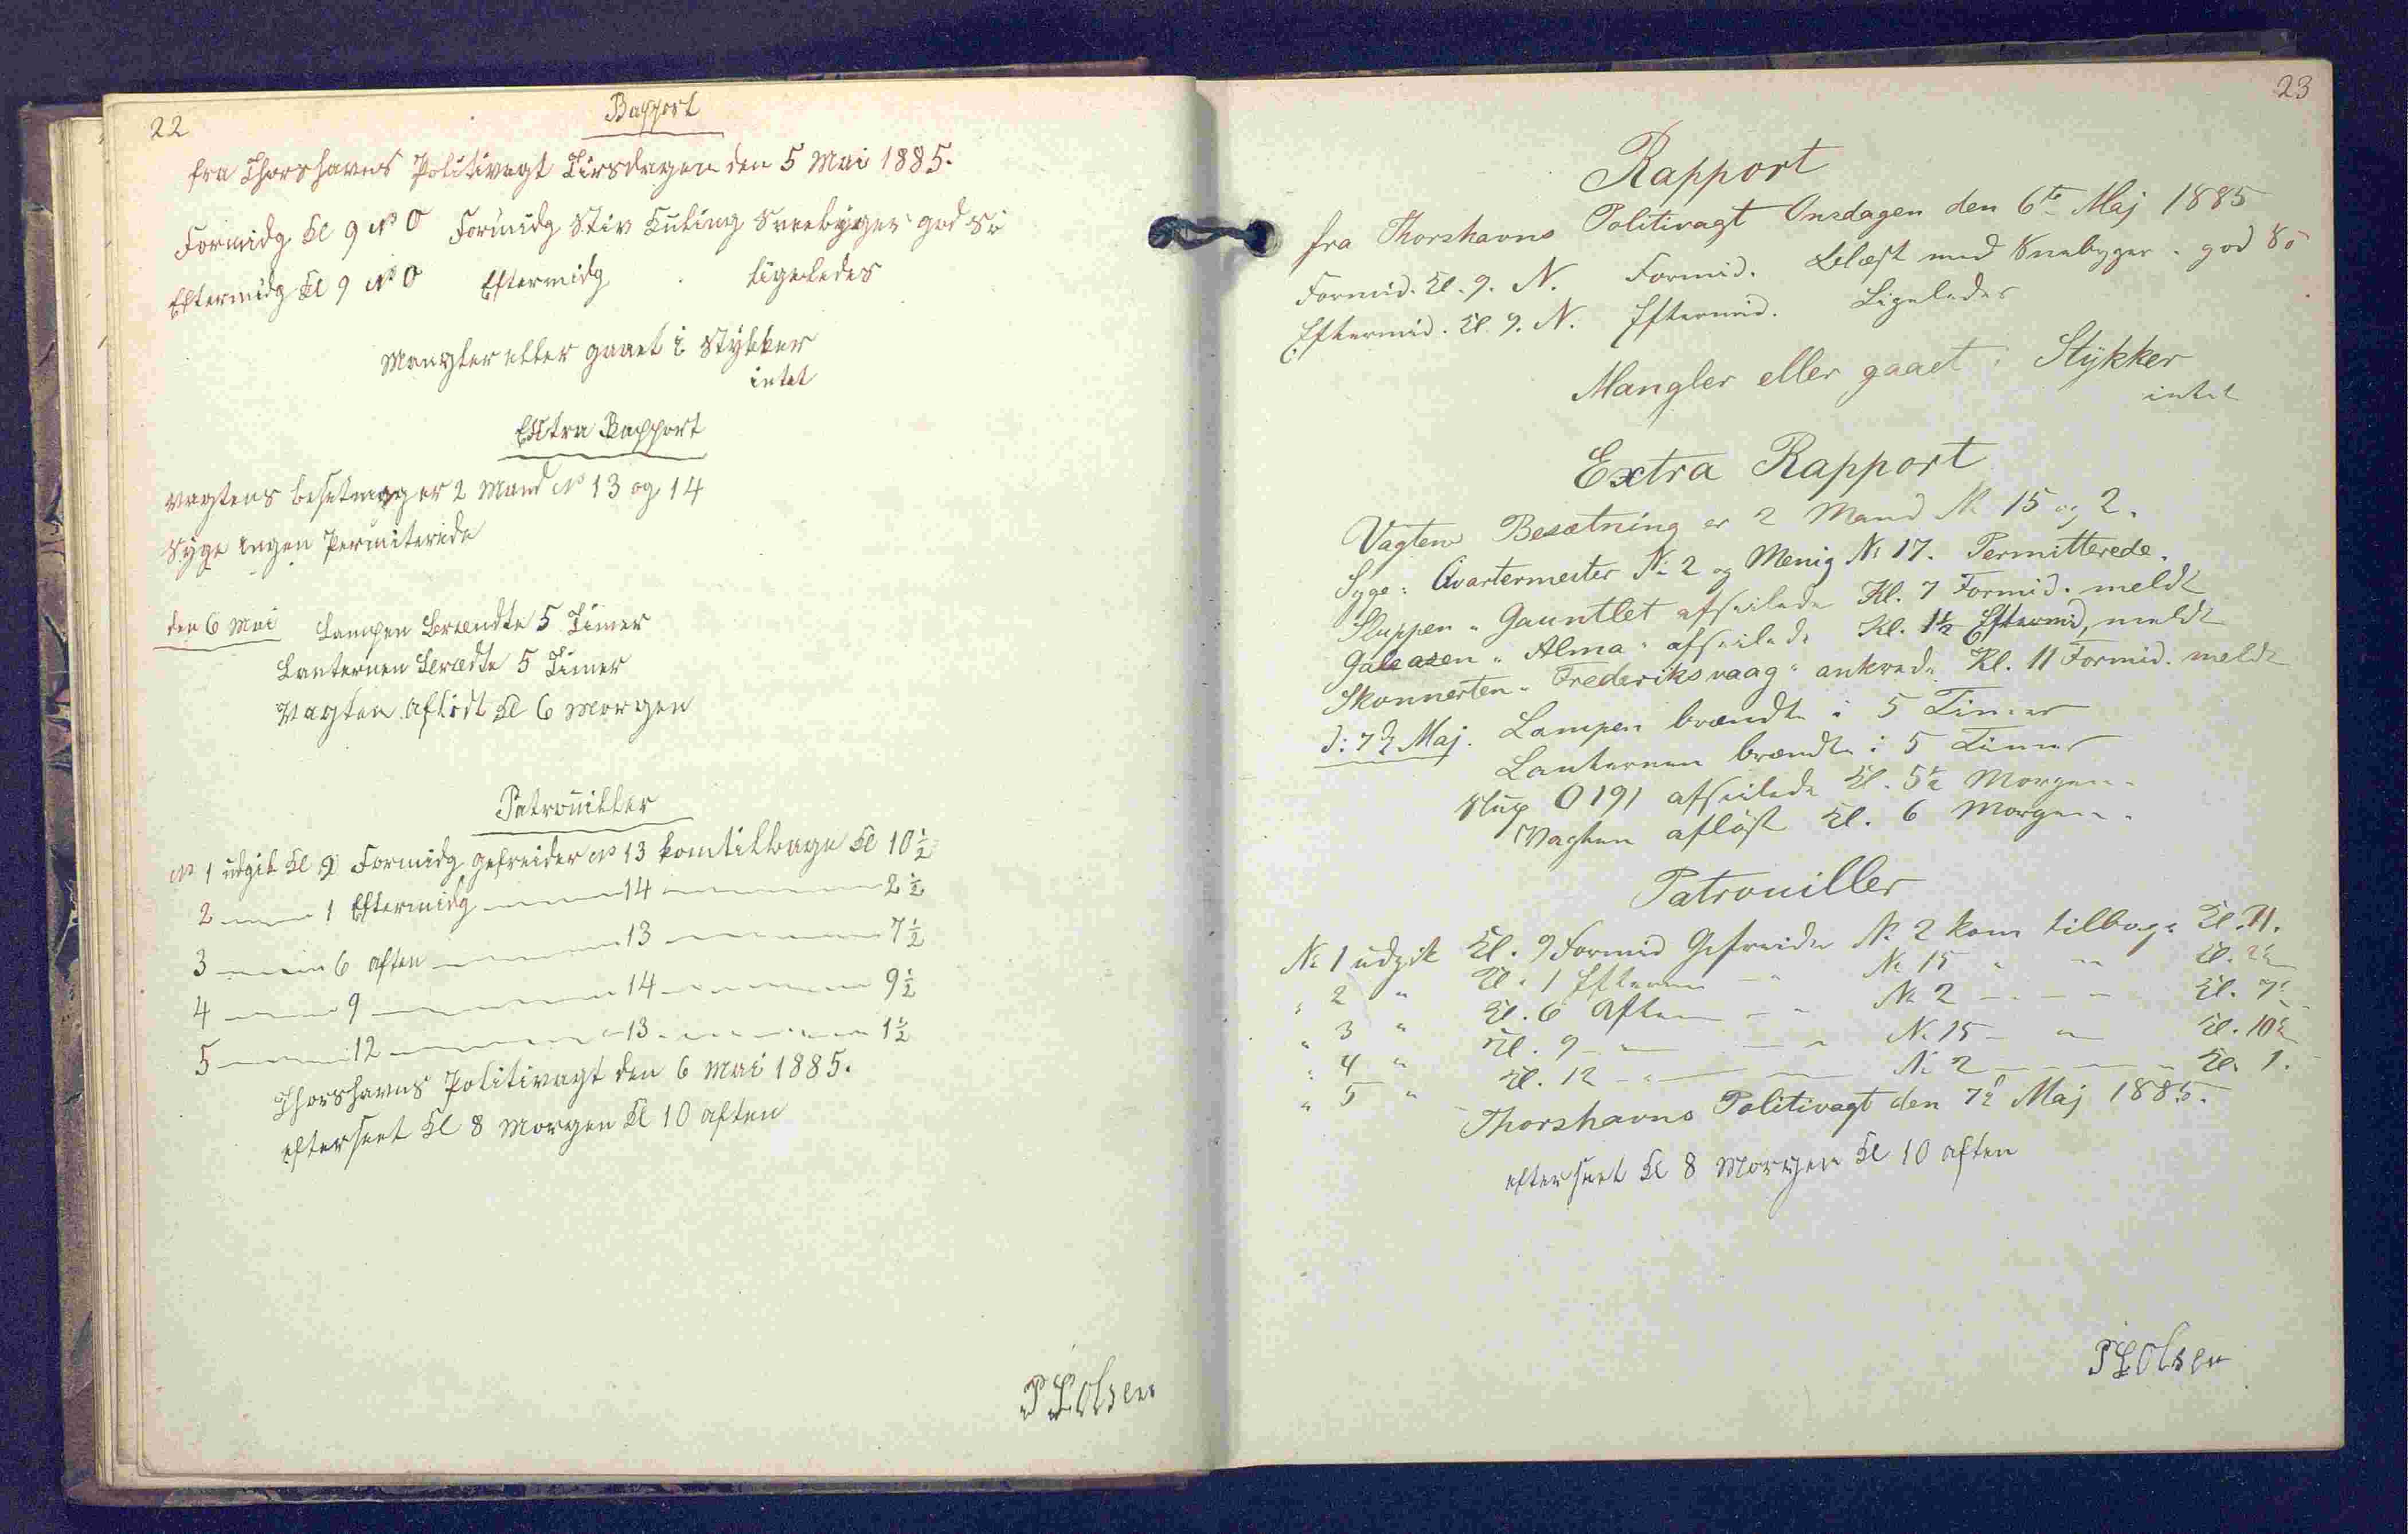 22
Rapport
fra Thorshavns Politivagt Tirsdagen den 5 Mai 1885.
Formidg Kl 9 N O Formidg Stiv Kuling Sneebyger god Sö
Eftermidg Kl 9 N O Eftermidg ligeledes
Mangler eller gaaet i Stykker
intet
Extra Rapport
Vagtens besetning er 2 Mand No 13 og 14
Syge Ingen Permiterede
den 6 Mai Lampen Brændte 5 Timer
Lanternen Brædte 5 Timer
Vagten aflöst Kl 6 Morgen
Patrouiller
No 1 udgik Kl 9 Formidg gefreider No 13 kom tilbage Kl 10½
2 — 1 Eftermidg — 14 — 2½
3 — 6 aften — 13 — 7½
4 — 9 — 14 — 9½
5 — 12 — 13 — 1½
Thorshavns Politivagt den 6 Mai 1885.
efterseet Kl 8 Morgen Kl 10 aften
P Olsen
23
Rapport
fra Thorshavns Politivagt Onsdagen den 6te Maj 1885
Formid. Kl. 9. N. Formid. Blæst med Snebyger. god Sö
Eftermid. Kl. 9. N. Eftermid. Ligeledes
Mangler eller gaaet i Stykker
intet
Extra Rapport
Vagtens Besætning er 2 Mand No 15 og 2.
Syge: Qvartermester No 2 og Menig No 17. Permitterede.
Sluppen "Gauntlet" afseilede Kl. 7 Formid. meldt
Galeasen "Alma" afseilede Kl. 1½ Eftermid, meldt
Skonnerten "Frederiksvaag" ankrede Kl. 11 Formid. meldt
d: 7de Maj. Lampen brændte i 5 Timer
Lanternen brændte i 5 Timer
Slup O 191 afseilede Kl. 5½ Morgen.
Vagten aflöst Kl. 6 Morgen.
Patrouiller
No 1 udgik Kl. 9 Formid Gefreider No 2 kom tilbage Kl. 11.
" 2 " Kl. 1 Efterm — " No 15 " — Kl. 2½
" 3 " Kl. 6 Aften — " No 2 — " — Kl. 7½
" 4 " Kl. 9 — " No 15 — " Kl. 10½
" 5 " Kl. 12 — " — No 2 — " Kl. 1.
Thorshavns Politivagt den 7de Maj 1885.
efterseet Kl 8 Morgen Kl 10 aften
P Olsen